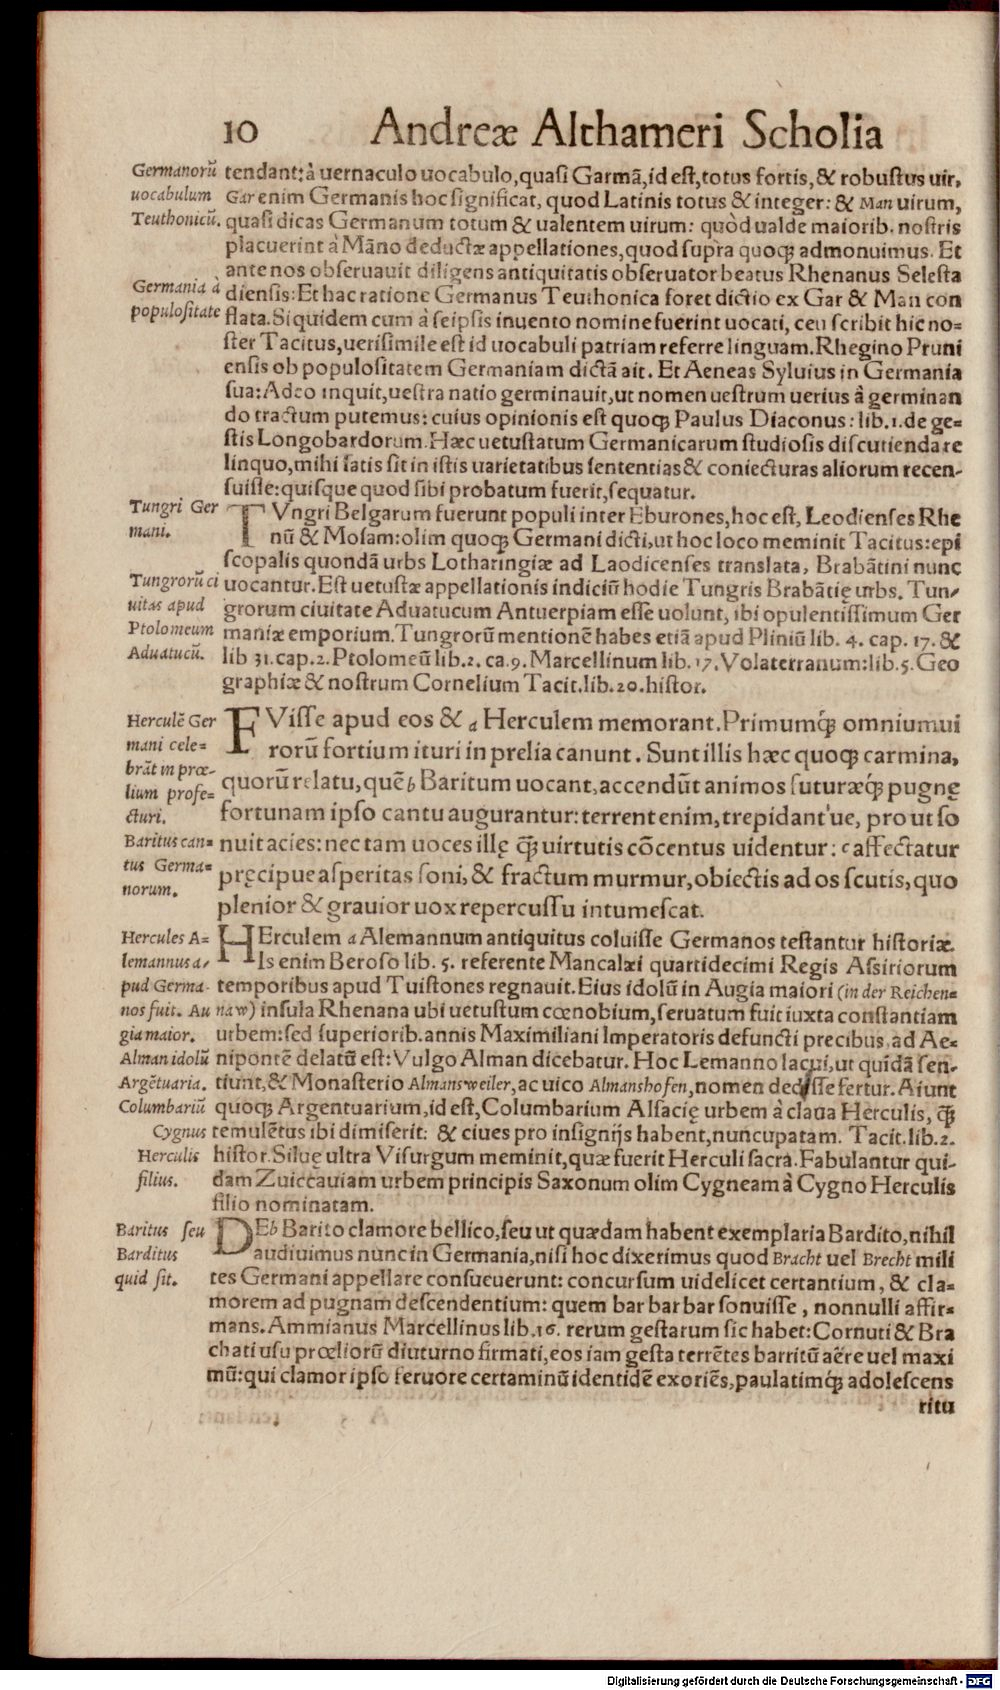 10 Andreæ Althameri Scholia
Germanorũ
uocabulum
Teuthonicũ.
tendant: à uernaculo uocabulo, quasi Garmã, id est, totus fortis, & robustus uir,
Gar enim Germanis hoc significat, quod Latinis totus & integer: & Man uirum,
quasi dicas Germanum totum & ualentem uirum: quòd ualde maiorib. nostris
placuerint à Mãno deductæ appellationes, quod supra quoqꝫ admonuimus. Et
ante nos obseruauit diligens antiquitatis obseruator beatus Rhenanus Selesta
Germania à
populositate
diensis: Et hac ratione Germanus Teuthonica foret dictio ex Gar & Man con
flata. Siquidem cum à seipsis inuento nomine fuerint uocati, ceu scribit hic no=
ster Tacitus, uerisimile est id uocabuli patriam referre linguam. Rhegino Pruni
ensis ob populositatem Germaniam dictã ait. Et Aeneas Syluius in Germania
sua: Adeo inquit, uestra natio germinauit, ut nomen uestrum uerius à germinan
do tractum putemus: cuius opinionis est quoqꝫ Paulus Diaconus: lib. 1. de ge=
stis Longobardorum. Hæc uetustatum Germanicarum studiosis discutienda re
linquo, mihi satis sit in istis uarietatibus sententias & coniecturas aliorum recen-
suisse: quisque quod sibi probatum fuerit, sequatur.
Tungri Ger
mani.
TVngri Belgarum fuerunt populi inter Eburones, hoc est, Leodienses Rhe
nũ & Mosam: olim quoqꝫ Germani dicti, ut hoc loco meminit Tacitus: epi
scopalis quondã urbs Lotharingiæ ad Laodicenses translata, Brabãtini nunc
Tungrorũ ci
uitas apud
Ptolomeum
Aduatucũ.
uocantur. Est uetustæ appellationis indiciũ hodie Tungris Brabãtię urbs. Tun-
grorum ciuitate Aduatucum Antuerpiam esse uolunt, ibi opulentissimum Ger
maniæ emporium. Tungrorũ mentionẽ habes etiã apud Pliniũ lib. 4. cap. 17. &
lib 31. cap. 2. Ptolomeũ lib. 2. ca. 9. Marcellinum lib. 17. Volaterranum: lib. 5. Geo
graphiæ & nostrum Cornelium Tacit. lib. 20. histor.
Herculẽ Ger
mani cele=
brãt in prœ-
lium profe=
cturi.
Baritus can=
tus Germa=
norum.
FVisse apud eos & a Herculem memorant. Primumqꝫ́ omnium ui
rorũ fortium ituri in prelia canunt. Sunt illis hæc quoqꝫ carmina,
quorũ relatu, quẽ b Baritum uocant, accendũt animos futuræqꝫ́ pugnę
fortunam ipso cantu augurantur: terrent enim, trepidant'ue, prout so
nuit acies: nec tam uoces illę qꝫ̃ uirtutis cõcentus uidentur: c affectatur
pręcipue asperitas soni, & fractum murmur, obiectis ad os scutis, quo
plenior & grauior uox repercussu intumescat.
Hercules A=
lemannus a-
pud Germa-
nos fuit. Au
gia maior.
Alman idolũ
Argẽtuaria.
Columbariũ
Cygnus
Herculis
filius.
HErculem a Alemannum antiquitus coluisse Germanos testantur historiæ.
Is enim Beroso lib. 5. referente Mancalæi quartidecimi Regis Assiriorum
temporibus apud Tuistones regnauit. Eius idolũ in Augia maiori (in der Reichen=
naw) insula Rhenana ubi uetustum cœnobium, seruatum fuit iuxta constantiam
urbem: sed superiorib. annis Maximiliani Imperatoris defuncti precibus, ad Ae=
nipontẽ delatũ est: Vulgo Alman dicebatur. Hoc Lemanno lacui, ut quidã sen-
tiunt, & Monasterio Almansweiler, ac uico Almanshofen, nomen dedisse fertur. Aiunt
quoqꝫ Argentuarium, id est, Columbarium Alsacię urbem à claua Herculis, qꝫ̃
temulẽtus ibi dimiserit: & ciues pro insignijs habent, nuncupatam. Tacit. lib. 2.
histor. Siluę ultra Visurgum meminit, quæ fuerit Herculi sacra. Fabulantur qui-
dam Zuiccauiam urbem principis Saxonum olim Cygneam à Cygno Herculis
filio nominatam.
Baritus seu
Barditus
quid sit.
DEb Barito clamore bellico, seu ut quædam habent exemplaria Bardito, nihil
audiuimus nunc in Germania, nisi hoc dixerimus quod Bracht uel Brecht mili
tes Germani appellare consueuerunt: concursum uidelicet certantium, & cla=
morem ad pugnam descendentium: quem bar bar bar sonuisse, nonnulli affir=
mans. Ammianus Marcellinus lib. 16. rerum gestarum sic habet: Cornuti & Bra
chati usu prœliorũ diuturno firmati, eos iam gesta terrẽtes barritũ aẽre uel maxi
mũ: qui clamor ipso feruore certaminũ identidẽ exoriẽs, paulatimqꝫ́ adolescens
ritu
Digitalisierung gefördert durch die Deutsche Forschungsgemeinschaft - DFG